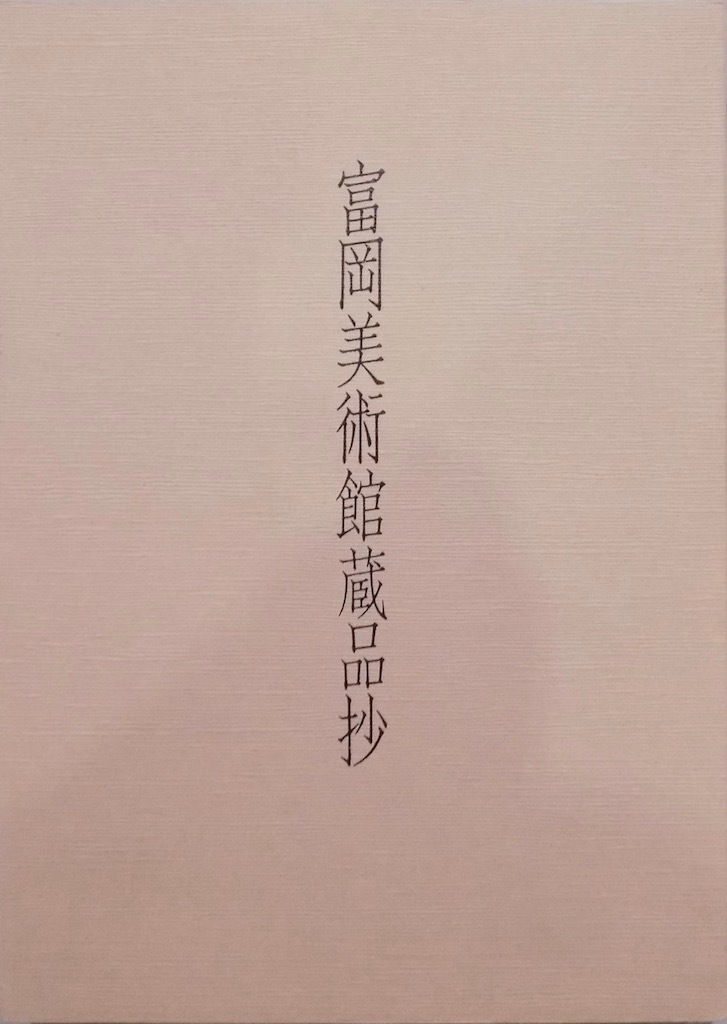 富岡美術館蔵品抄